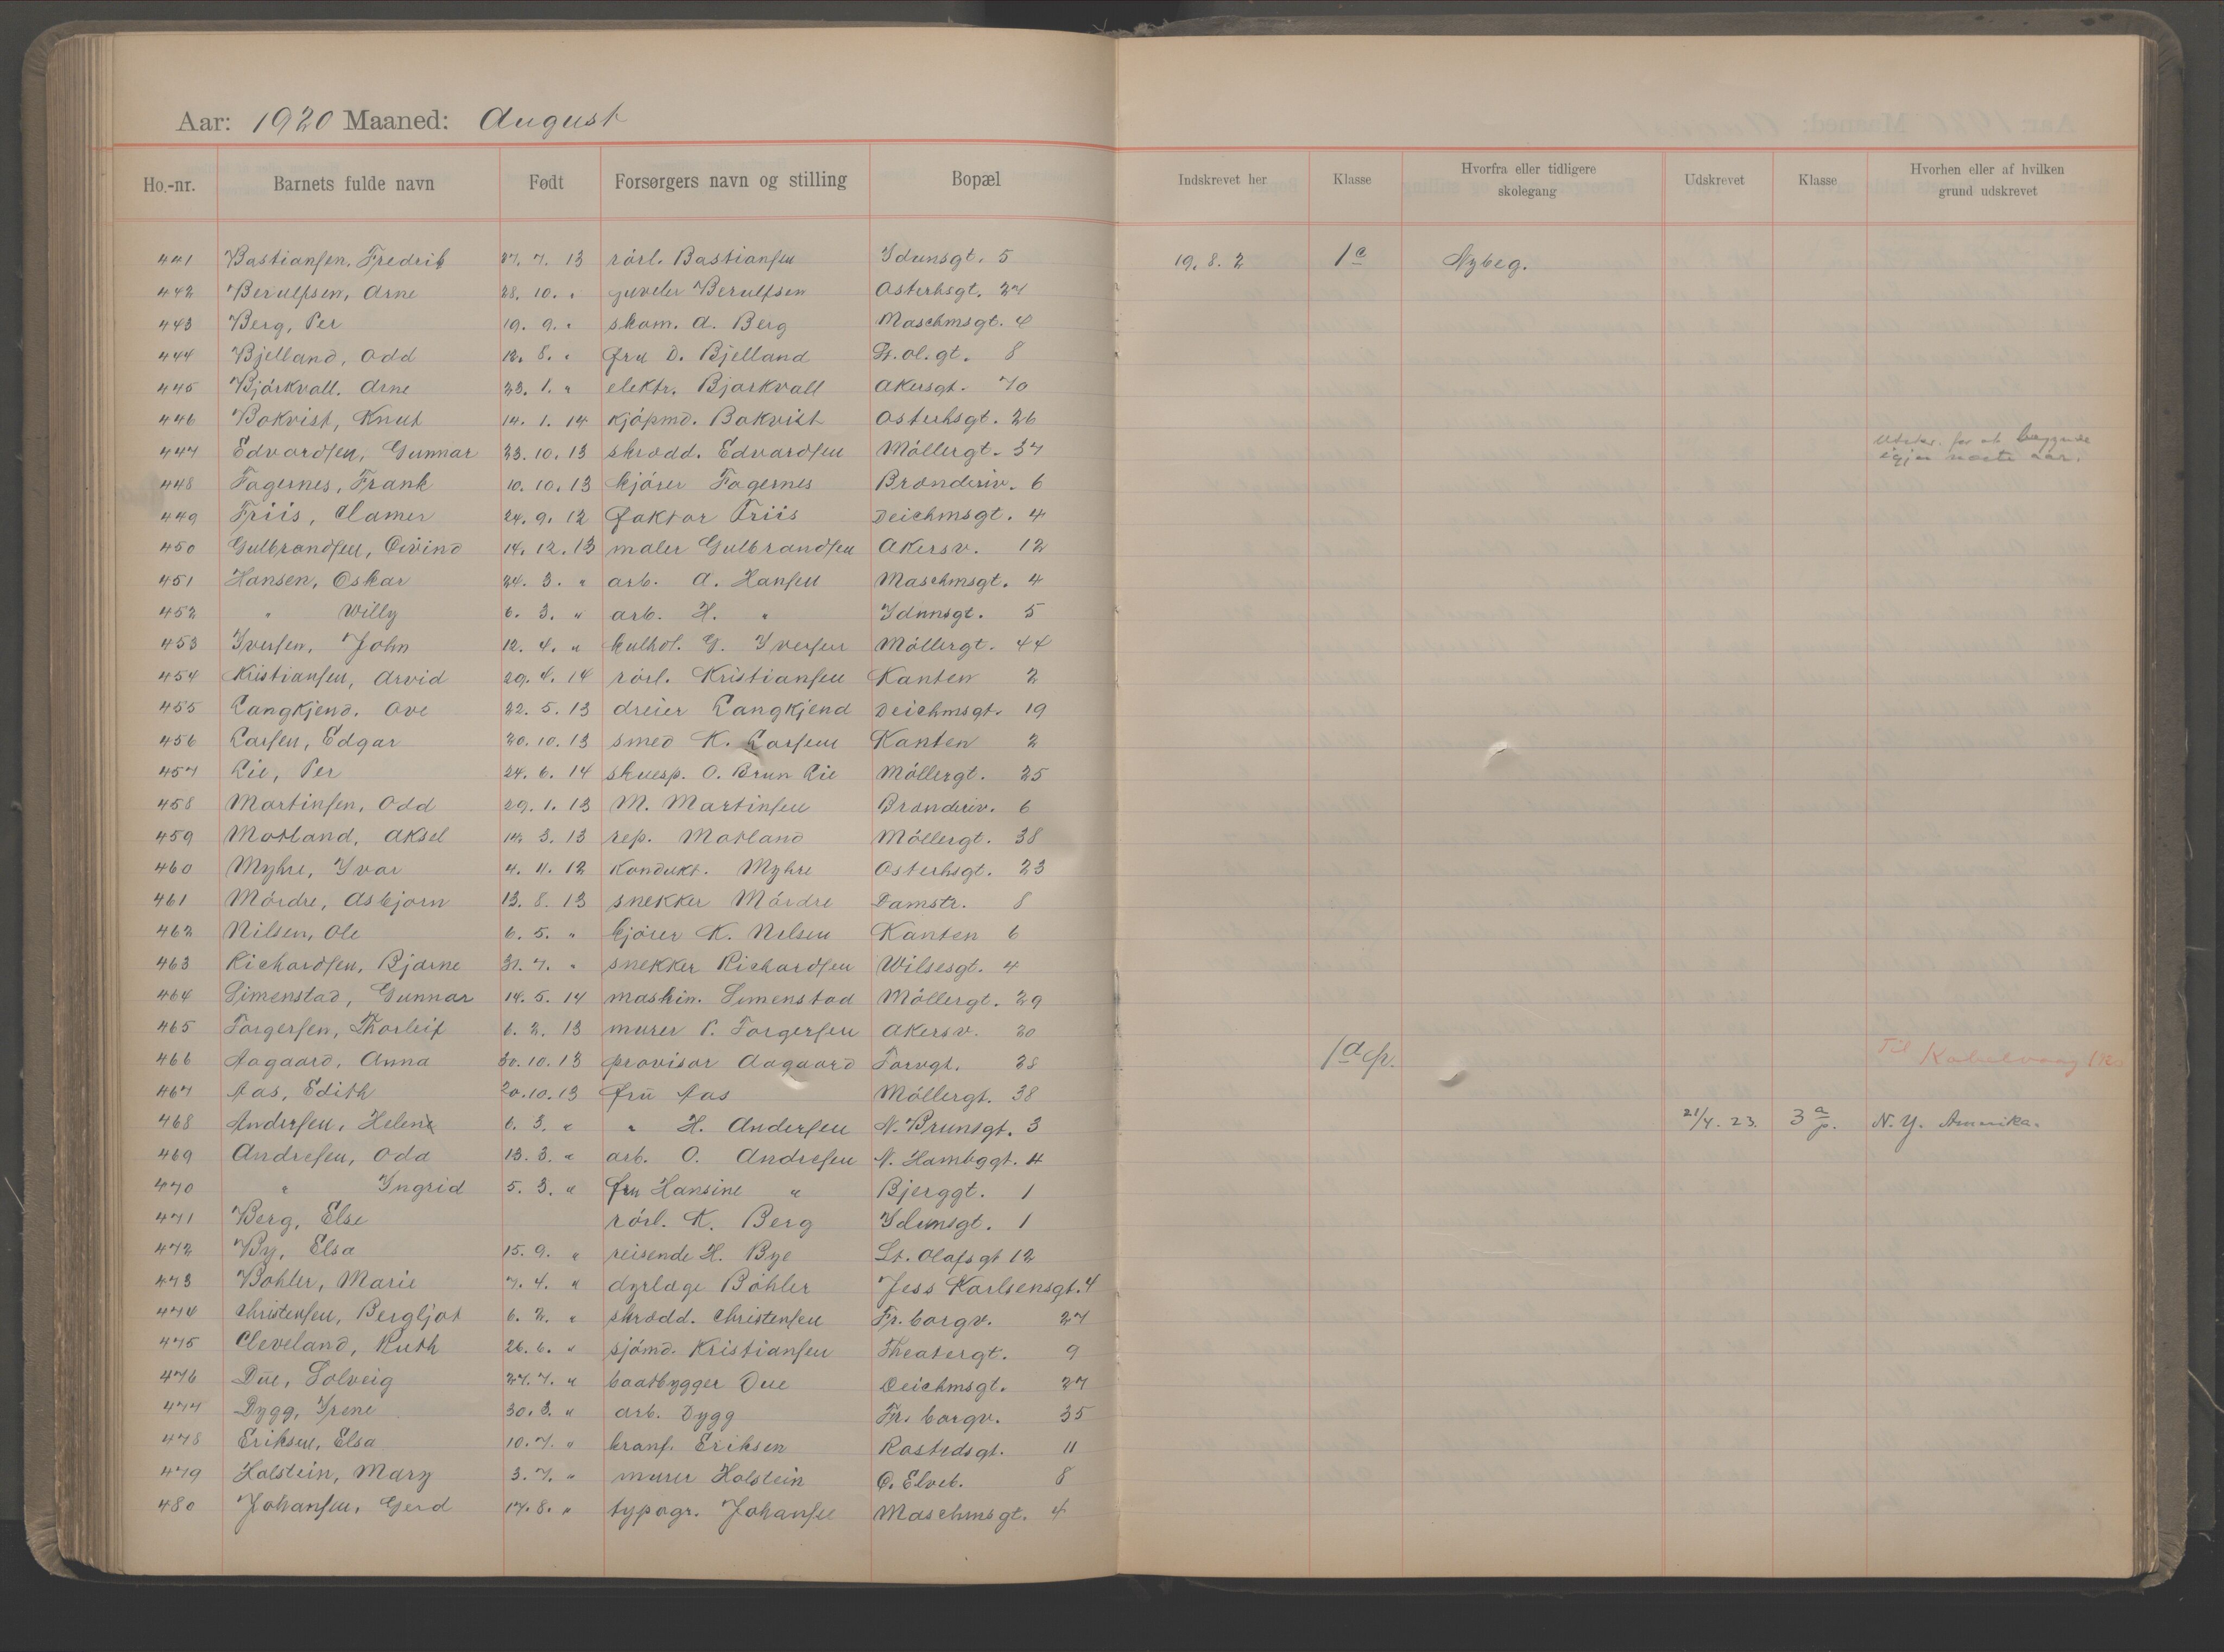 Aar: 1920 Maaned: August
Ho.-nr. Barnets fulde navn Født Forsørgers navn og stilling Bopæl Indskrevet her Klasse Hvorfra eller tidligere skolegang Udskrevet Klasse Hvorhen eller af hvilken grund udskrevet
441 Bastiansen, Fredrik 27. 7. 13 rörl. Bastiansen Idunsgt. 5 19. 8. 2 1a Nybeg.
442 Berulfsen, Arne 28. 10. " juveler Berulfsen Osterhsgt. 27
443 Berg, Per 19. 9. " skom. A. Berg Maschmsgt. 4
444 Bjelland, Odd 12. 8. " fru D. Bjelland St. ol. gt. 8
445 Björkvall, Arne 23. 1. " elektr. Bjorkvall Akersgt. 70
446 Bokvist, Knut 14. 1. 14 kjöpmd. Bokvist Osterhsgt. 26
447 Edvardsen, Gunnar 23. 10. 13 skrædd. Edvardsen Möllergt. 37 Utskr. for at begynde igjen næste aar.
448 Fagernes, Frank 10. 10. 13 kjörer Fagernes Brænderiv. 6
449 Friis, Hamer 24. 9. 12 faktor Friis Deichmsgt. 4
450 Gulbrandsen, Eivind 14. 12. 13 maler Gulbrandsen Akersv. 12
451 Hansen, Oskar 24. 3. " arb. A. Hansen Maschmsgt. 4
452 " Willy 6. 3. " arb. H. " Idunsgt. 5
453 Iversen, John 12. 4. " kulhdl. G. Iversen Möllergt. 44
454 Kristiansen, Arvid 29. 4. 14 rörl. Kristiansen Kanten 2
455 Langkjend, Ove 22. 5. 13 dreier Langkjend Deichmsgt. 19
456 Larsen, Edgar 20. 10. 13 smed K. Larsen Kanten 2
457 Lie, Per 24. 6. 14 skuesp. O. Brun Lie Möllergt. 25
458 Martinsen, Odd 29. 1. 13 M. Martinsen Brænderiv. 6
459 Motland, Aksel 14. 3. 13 rep. Motland Möllergt. 38
460 Myhre, Ivar 4. 11. 12 Kondukt. Myhre Osterhsgt. 23
461 Mördre, Asbjorn 13. 8. 13 snekker Mördre Damstr. 8
462 Nilsen, Ole 6. 5. " kjörer K. Nilsen Kanten 6
463 Richardsen, Bjarne 31. 7. " snekker Richardsen Wilsesgt. 4
464 Simenstad, Gunnar 14. 5. 14 maskin. Simenstad Möllergt. 29
465 Torgersen, Thorleif 6. 2. 13 murer P. Torgersen Akersv. 20
466 Aagaard, Anna 30. 10. 13 provisor Aagaard Torvgt. 28 1d p. Til Kabelvaag
467 Aas, Edith 20. 10. 13 fru Aas Möllergt. 38
468 Andersen, Helene 6. 3. " " H. Andersen N. Brunsgt. 3 21/4. 23. 3a p. N. Y. Amerika.
469 Andresen, Oda 13. 3. " arb. O. Andresen N. Hambggt. 4
470 " Ingrid 5. 3. " fru Hansine " Bjerggt. 1
471 Berg, Else rörl. K. Berg Idunsgt. 1
472 By, Elsa 15. 9. " reisende H. Bye St. Olafsgt 12
473 Bohler, Marie 7. 4. " dyrlæge Böhler Jess Karlsensgt. 4
474 Christensen, Bergljot 6. 2. " skrædd. Christensen Fr. borgv. 27
475 Cleveland, Ruth 26. 6. " sjömd. Kristiansen Theatergt. 9
476 Due, Solveig 27. 7. " baatbygger Due Deichmsgt. 27
477 Dygg, Irene 30. 3. " arb. Dygg Fr. borgv. 35
478 Eriksen, Elsa 10. 7. " Eriksen Rostedsgt. 11
479 Holstein, Mary 3. 7. " murer Holstein O. Elveb. 8
480 Johansen, Gerd 17. 8. " typogr. Johansen Maschmsgt. 4